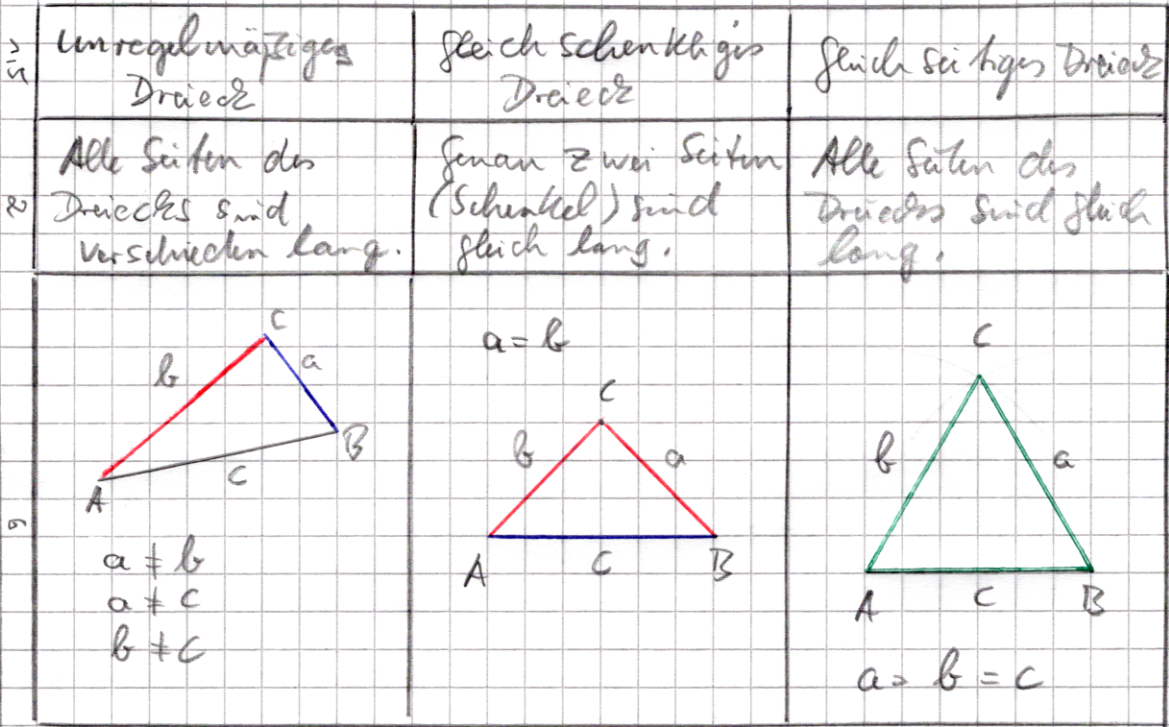 Unregelmäßiges
Dreieck
gleichschenkliges
Dreieck
gleichseitiges Dreieck
Alle Seiten des
Dreiecks sind
verschieden lang.
Genau zwei Seiten
(Schenkel) sind
gleich lang.
Alle Seiten des
Dreiecks sind gleich
lang.
C
b
a
B
c
A
a ≠ b
a ≠ c
b ≠ c
a = b
C
b
a
A
c
B
C
b
a
A
c
B
a = b = c